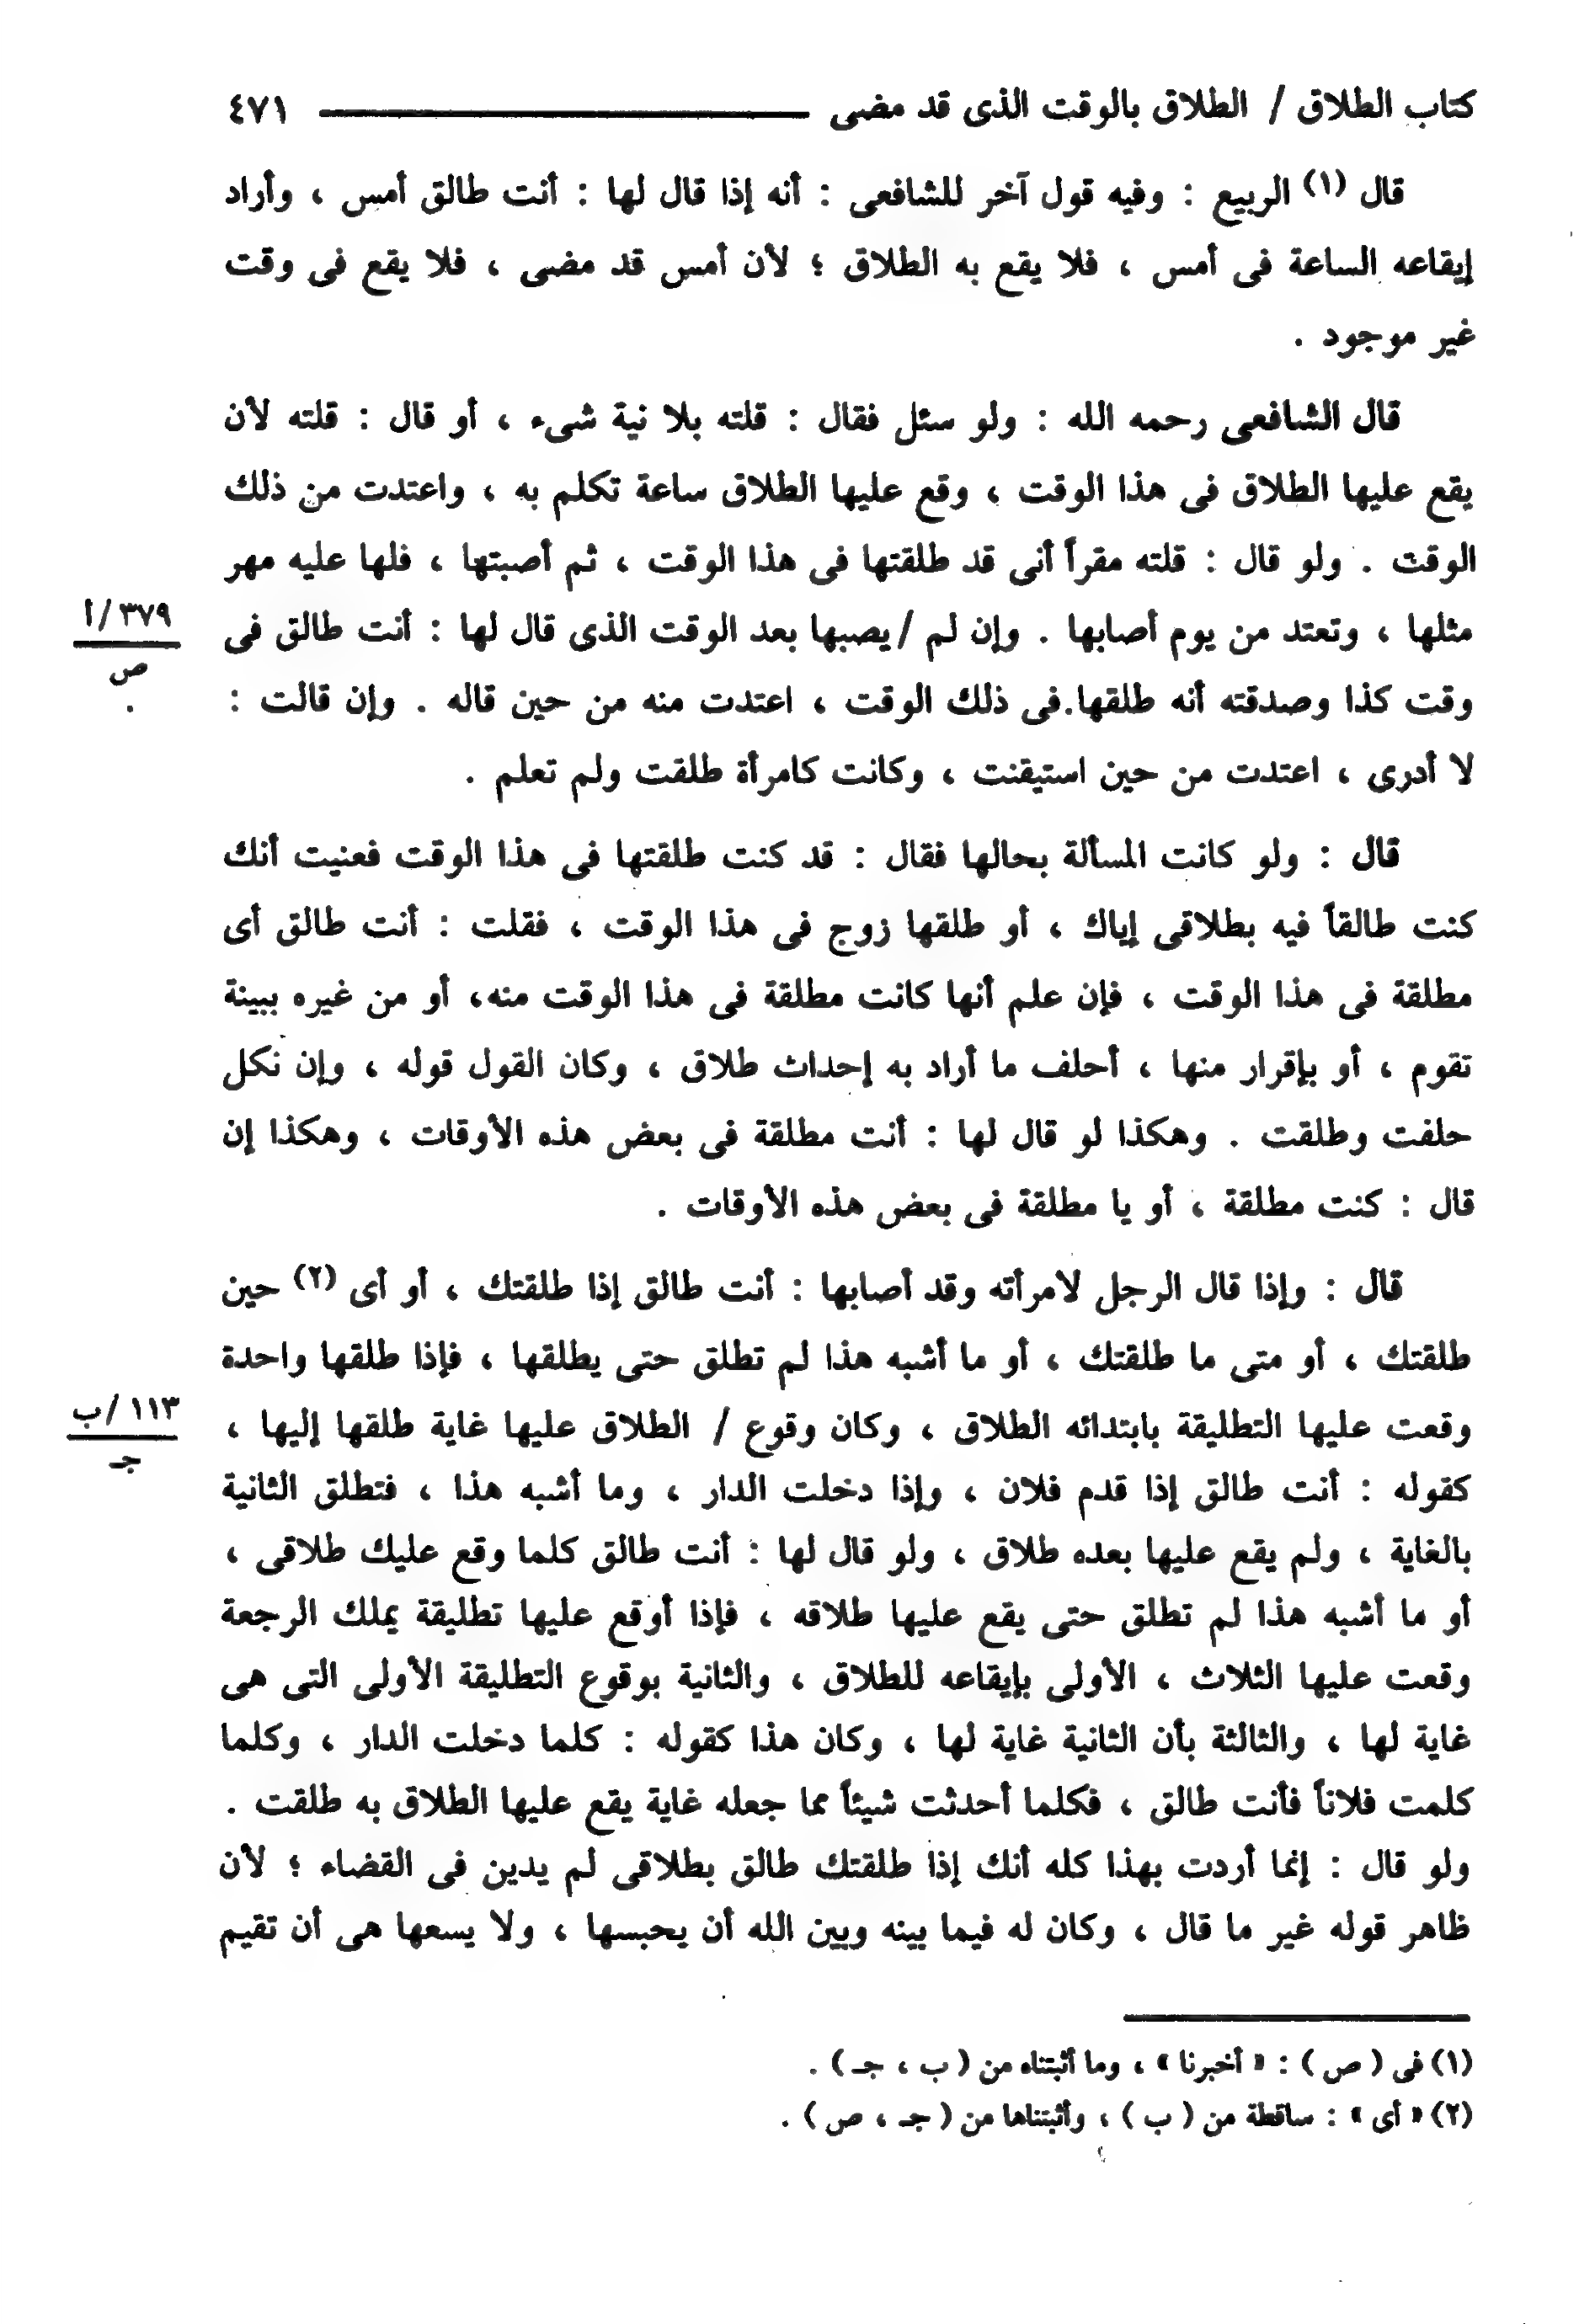 كتاب الطلاق / الطلاق بالوقت الذى قد مضى ٤٧١
قال (١) الربيع : وفيه قول آخر للشافعى : أنه إذا قال لها : أنت طالق أمس ، وأراد
إيقاعه الساعة فى أمس ، فلا يقع به الطلاق ؛ لأن أمس قد مضى ، فلا يقع فى وقت
غير موجود .
قال الشافعى رحمه الله : ولو سئل فقال : قلته بلا نية شىء ، أو قال : قلته لأن
يقع عليها الطلاق فى هذا الوقت ، وقع عليها الطلاق ساعة تكلم به ، واعتدت من ذلك
الوقت . ولو قال : قلته مقراً أنى قد طلقتها فى هذا الوقت ، ثم أصبتها ، فلها عليه مهر
مثلها ، وتعتد من يوم أصابها . وإن لم / يصبها بعد الوقت الذى قال لها : أنت طالق فى
٣٧٩/أ
ص
وقت كذا وصدقته أنه طلقها.فى ذلك الوقت ، اعتدت منه من حين قاله . وإن قالت :
لا أدرى ، اعتدت من حين استيقنت ، وكانت كامرأة طلقت ولم تعلم .
قال : ولو كانت المسألة بحالها فقال : قد كنت طلقتها فى هذا الوقت فعنيت أنك
كنت طالقاً فيه بطلاقى إياك ، أو طلقها زوج فى هذا الوقت ، فقلت : أنت طالق أى
مطلقة فى هذا الوقت ، فإن علم أنها كانت مطلقة فى هذا الوقت منه، أو من غيره ببينة
تقوم ، أو بإقرار منها ، أحلف ما أراد به إحداث طلاق ، وكان القول قوله ، وإن نكل
حلفت وطلقت . وهكذا لو قال لها : أنت مطلقة فى بعض هذه الأوقات ، وهكذا إن
قال : كنت مطلقة ، أو يا مطلقة فى بعض هذه الأوقات .
قال : وإذا قال الرجل لامرأته وقد أصابها : أنت طالق إذا طلقتك ، أو أى (٢) حين
طلقتك ، أو متى ما طلقتك ، أو ما أشبه هذا لم تطلق حتى يطلقها ، فإذا طلقها واحدة
وقعت عليها التطليقة بابتدائه الطلاق ، وكان وقوع / الطلاق عليها غاية طلقها إليها ،
١١٣/ب
جـ
كقوله : أنت طالق إذا قدم فلان ، وإذا دخلت الدار ، وما أشبه هذا ، فتطلق الثانية
بالغاية ، ولم يقع عليها بعده طلاق ، ولو قال لها : أنت طالق كلما وقع عليك طلاقى ،
أو ما أشبه هذا لم تطلق حتى يقع عليها طلاقه ، فإذا أوقع عليها تطليقة يملك الرجعة
وقعت عليها الثلاث ، الأولى بإيقاعه للطلاق ، والثانية بوقوع التطليقة الأولى التى هى
غاية لها ، والثالثة بأن الثانية غاية لها ، وكان هذا كقوله : كلما دخلت الدار ، وكلما
كلمت فلاناً فأنت طالق ، فكلما أحدثت شيئاً مما جعله غاية يقع عليها الطلاق به طلقت .
ولو قال : إنما أردت بهذا كله أنك إذا طلقتك طالق بطلاقى لم يدين فى القضاء ؛ لأن
ظاهر قوله غير ما قال ، وكان له فيما بينه وبين الله أن يحبسها ، ولا يسعها هى أن تقيم
(١) فى ( ص ) : « أخبرنا » ، وما أثبتناه من ( ب ، جـ ) .
(٢) « أى » : ساقطة من ( ب ) ، وأثبتناها من ( جـ ، ص ) .